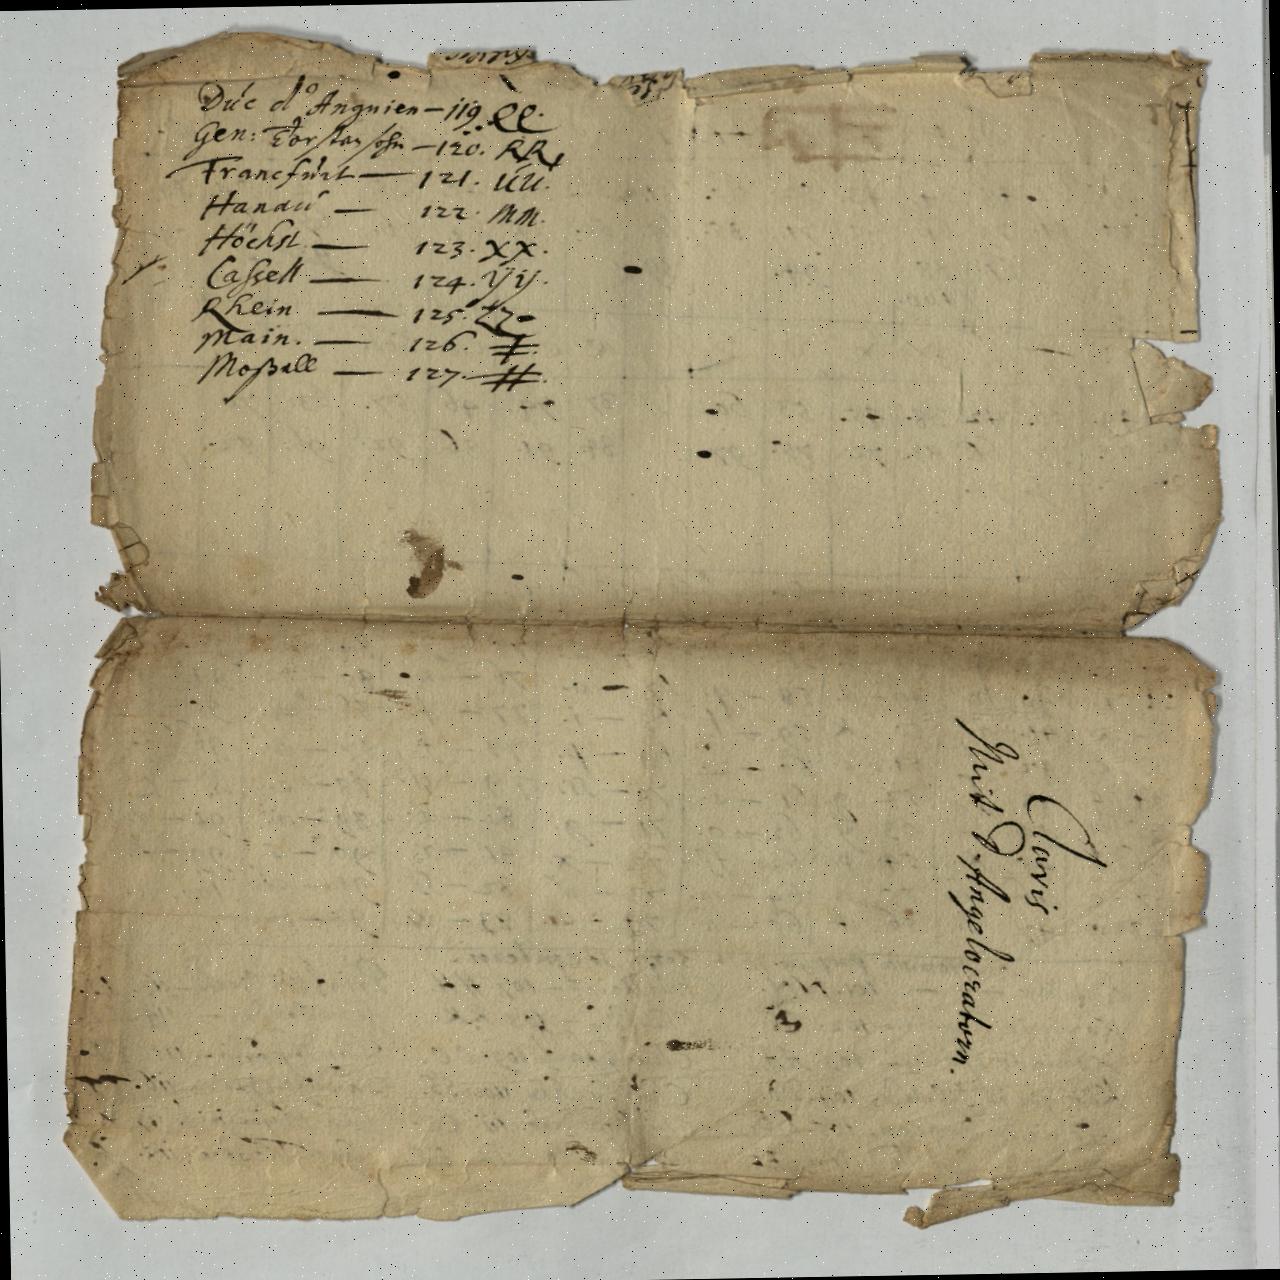 Duc d'Anguien — 119. QQ.
Gen: Torstensohn — 120. RR.
Francfurt — 121. UU.
Hanau — 122. MM.
Höchst — 123. XX.
Cassell — 124. ÿÿ.
Rhein — 125. ZZ
Main. — 126.
Moßell — 127.
Clavis
Mit D. Angelocratorn.